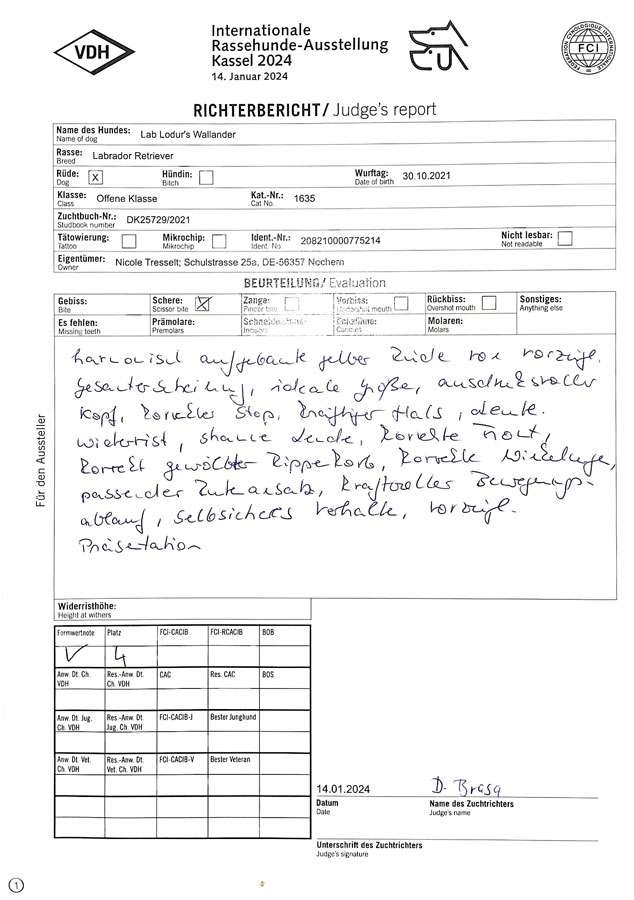 VDH
Internationale
Rassehunde-Ausstellung
Kassel 2024
14. Januar 2024
FCI
RICHTERBERICHT/Judge's report
Name des Hundes: Lab Lodur's Wallander
Name of dog
Rasse: Labrador Retriever
Breed
Rüde: x Hündin: Wurftag: 30.10.2021
Dog Bitch Date of birth
Klasse: Offene Klasse Kat.-Nr.: 1635
Class Cat No.
Zuchtbuch-Nr.: DK25729/2021
Studbook number
Tätowierung: Mikrochip: Ident.-Nr.: 208210000775214 Nicht lesbar:
Tattoo Mikrochip Ident. No Not readable
Eigentümer: Nicole Tresselt; Schulstrasse 25a, DE-56357 Nochern
Owner
BEURTEILUNG/Evaluation
Gebiss: Schere: x Zange: Vorbiss: Rückbiss: Sonstiges:
Bite Scissor bite Pincer bite mouth Overshot mouth Anything else
Es fehlen: Prämolare: Molaren:
Missing teeth Premolars Incisors Canines Molars
harmonisch aufgebaute gelber Rüde von vorzügl.
Gesamterscheinung, ideale Größe, ausdrucksvoller
Kopf, korrekter Stop, kräftiger Hals, deutl.
Widerrist, korrekte Front,
korrekt gewölbter Rippenkorb, korrekte Winkelunge,
passender Rutenansatz, kraftvoller Bewegungs-
ablauf, selbsicheres Verhalte, vorzügl.
Präsentation
Für den Aussteller
Widerristhöhe:
Height at withers
Formwertnote Platz FCI-CACIB FCI-RCACIB BOB
V 4
Anw. Dt. Ch. Res.-Anw. Dt. CAC Res. CAC BOS
VDH Ch. VDH
Anw. Dt. Jug. Res.-Anw. Dt. FCI-CACIB-J Bester Junghund
Ch. VDH Jug. Ch. VDH
Anw. Dt. Vet. Res.-Anw. Dt. FCI-CACIB-V Bester Veteran
Ch. VDH Vet. Ch. VDH
14.01.2024 D.
Datum Name des Zuchtrichters
Date Judge's name
Unterschrift des Zuchtrichters
Judge's signature
1